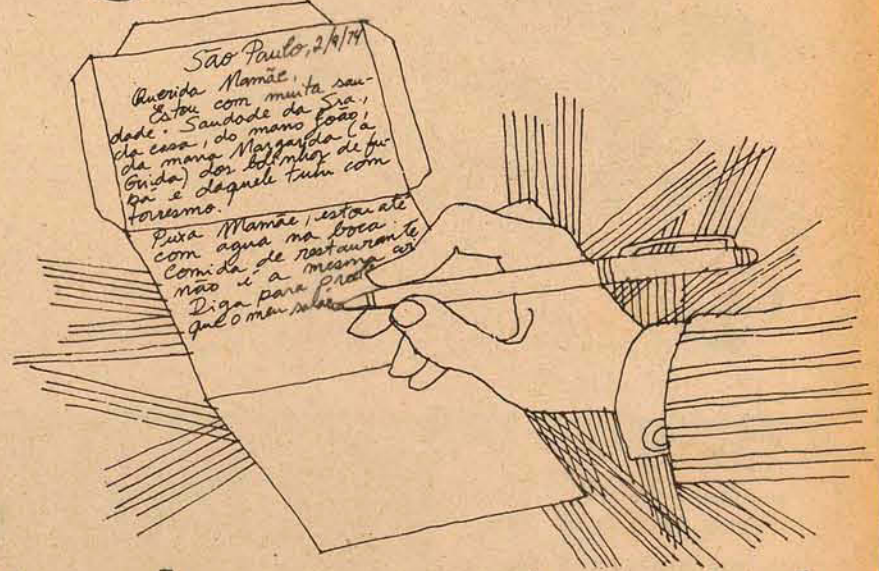 São Paulo, 2/9/74
Querida Mamãe,
Estou com muita sau-
dade. Saudade da Sra.,
da casa, do mano João,
da mana Margarida (a
Guida) dos bolinhos de fu-
bá e daquele tutu com
torresmo.
Puxa Mamãe, estou até
com agua na boca.
Comida de restaurante
não é a mesma
Diga para
que o meu